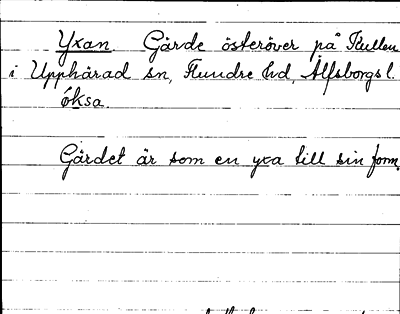 Yxan. Gärde österöver på Kullen
i Upphärad sn, Flundre hd, Älfsborgs l.
óksa.
Gärdet är som en yxa till sin form.